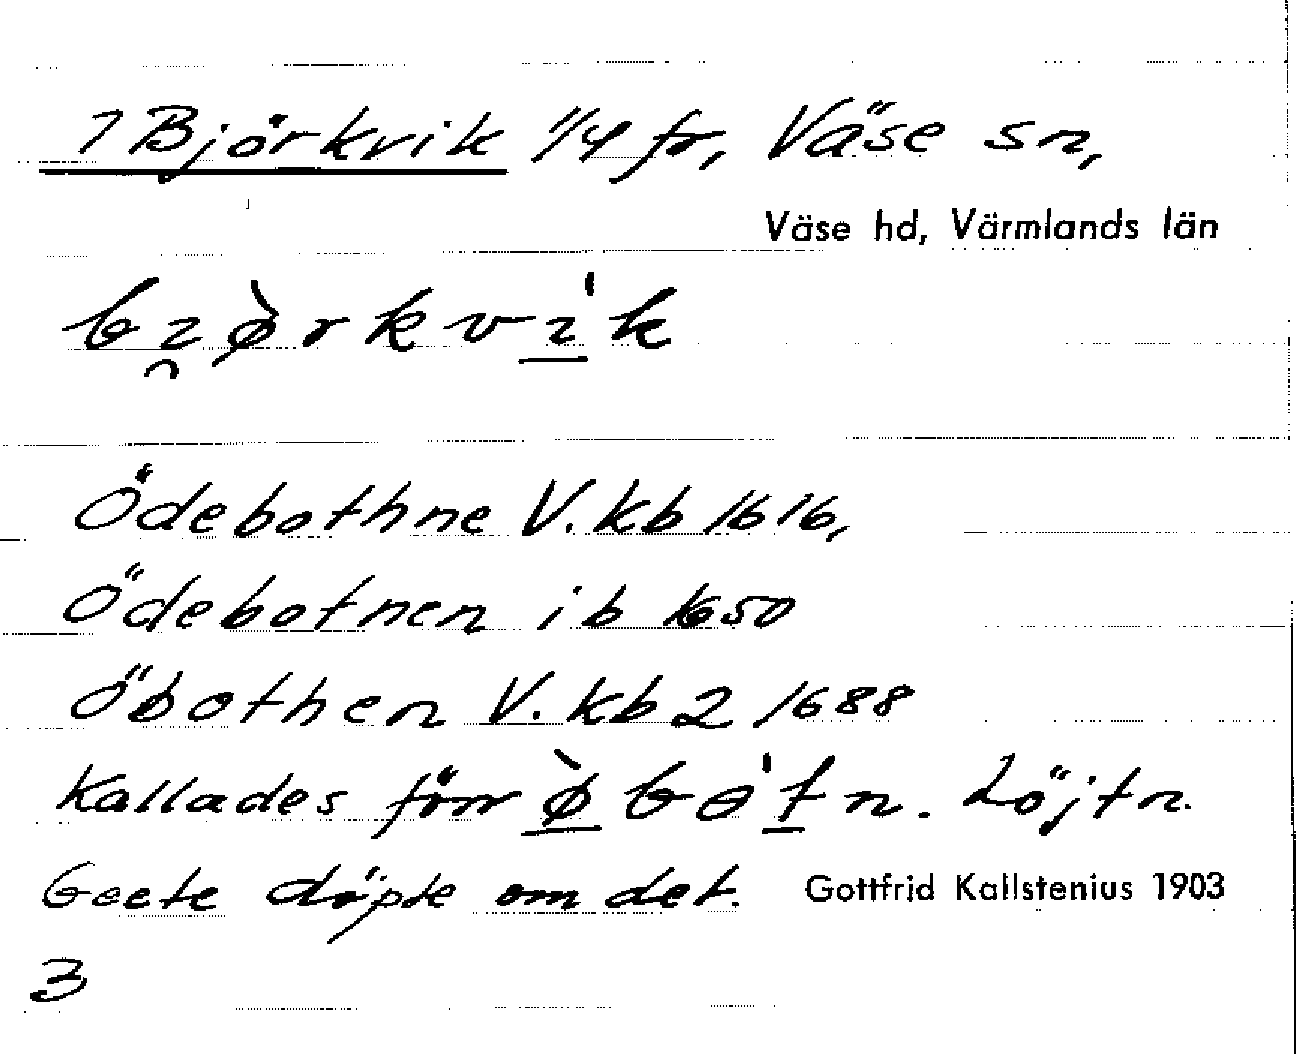 1 Björkvik 1/4 fr, Väse sn,
Väse hd, Värmlands län
bı̯ø̀rkvı̲ˈk
Ödebothne V. kb 1616,
Ödebotnen ib 1650
Öbothen V. kb 2 1688
Kallades förr ø̲̀boˈt̲n. Löjtn.
Geete döpte om det. Gottfrid Kallstenius 1903
3